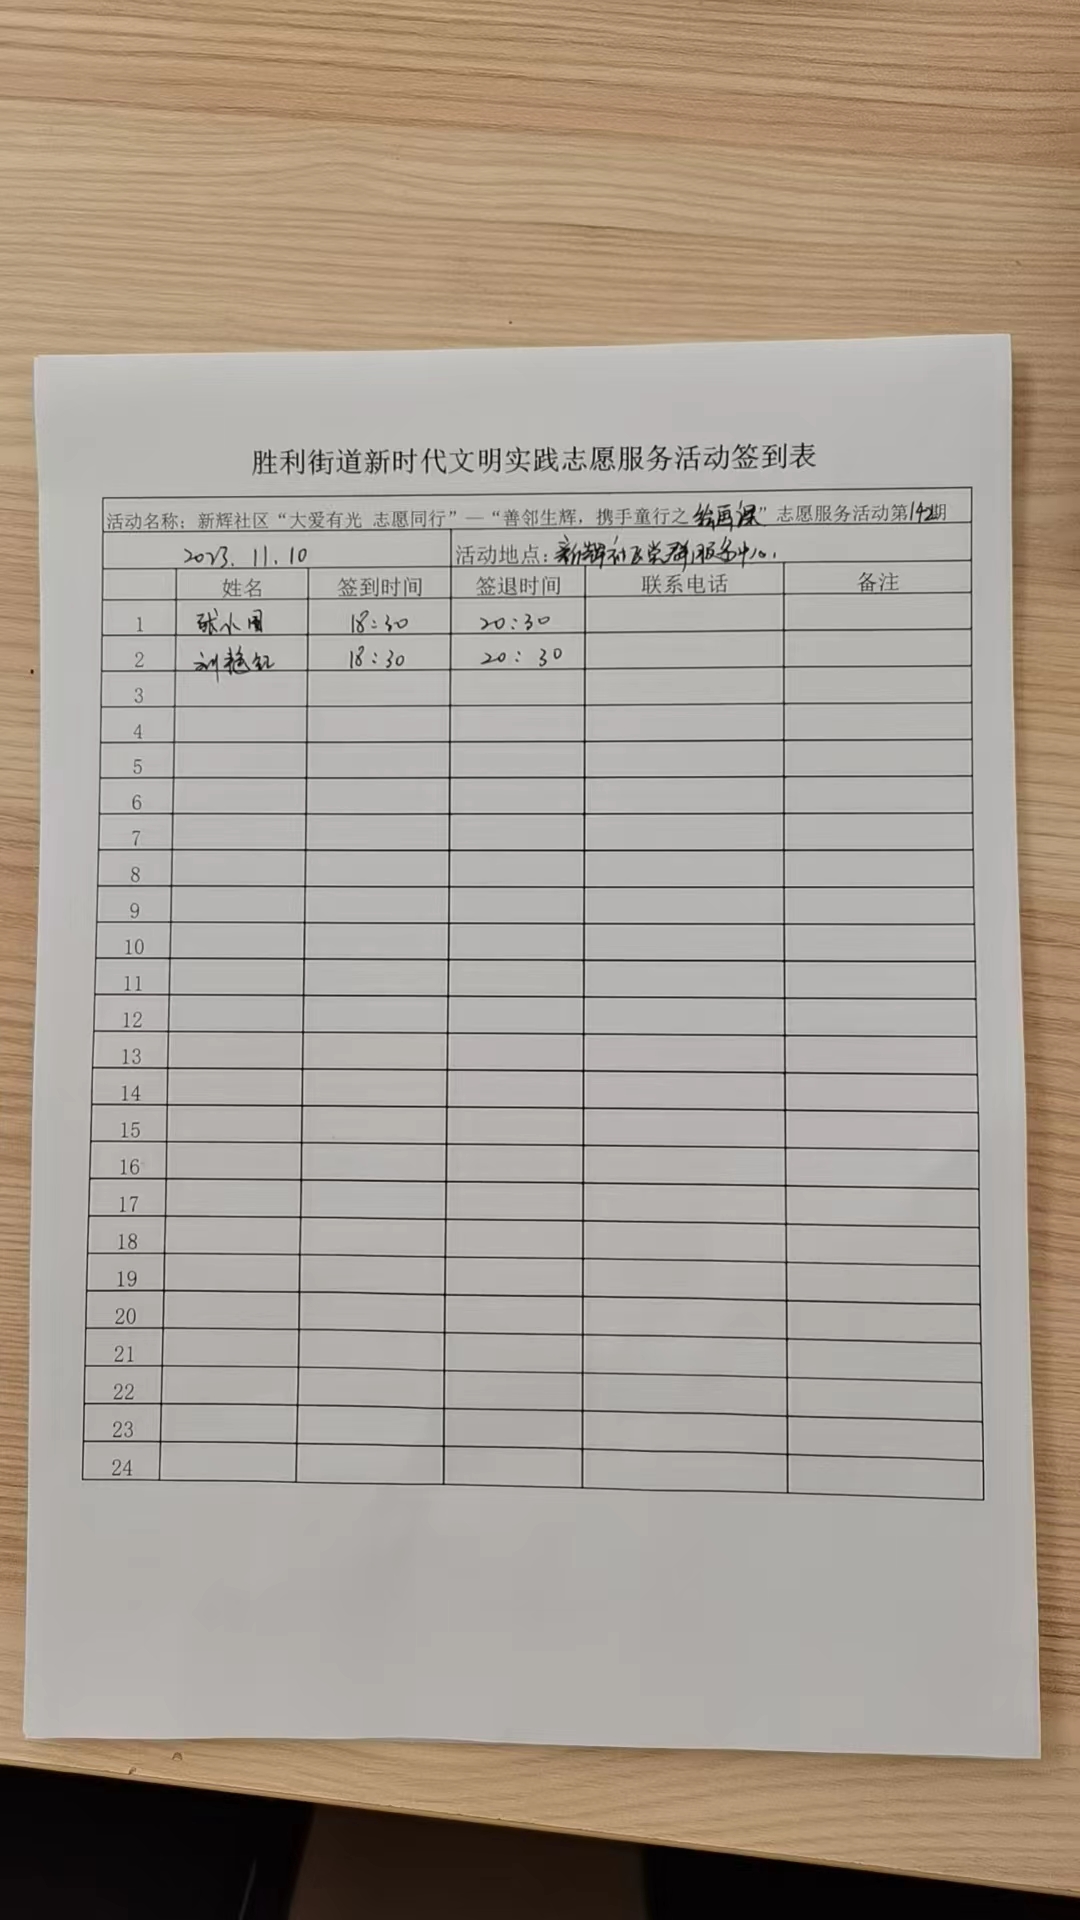 胜利街道新时代文明实践志愿服务活动签到表
活动名称：新辉社区“大爱有光 志愿同行”—“善邻生辉，携手童行之绘画课”志愿服务活动第142期
2023.11.10 活动地点：新辉社区党群服务中心.
姓名 签到时间 签退时间 联系电话 备注
1 18:30 20:30
2 刘艳红 18:30 20:30
3
4
5
6
7
8
9
10
11
12
13
14
15
16
17
18
19
20
21
22
23
24